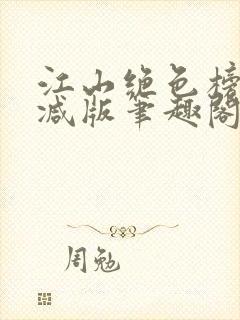 江山绝色榜
减版笔趣阁
周勉